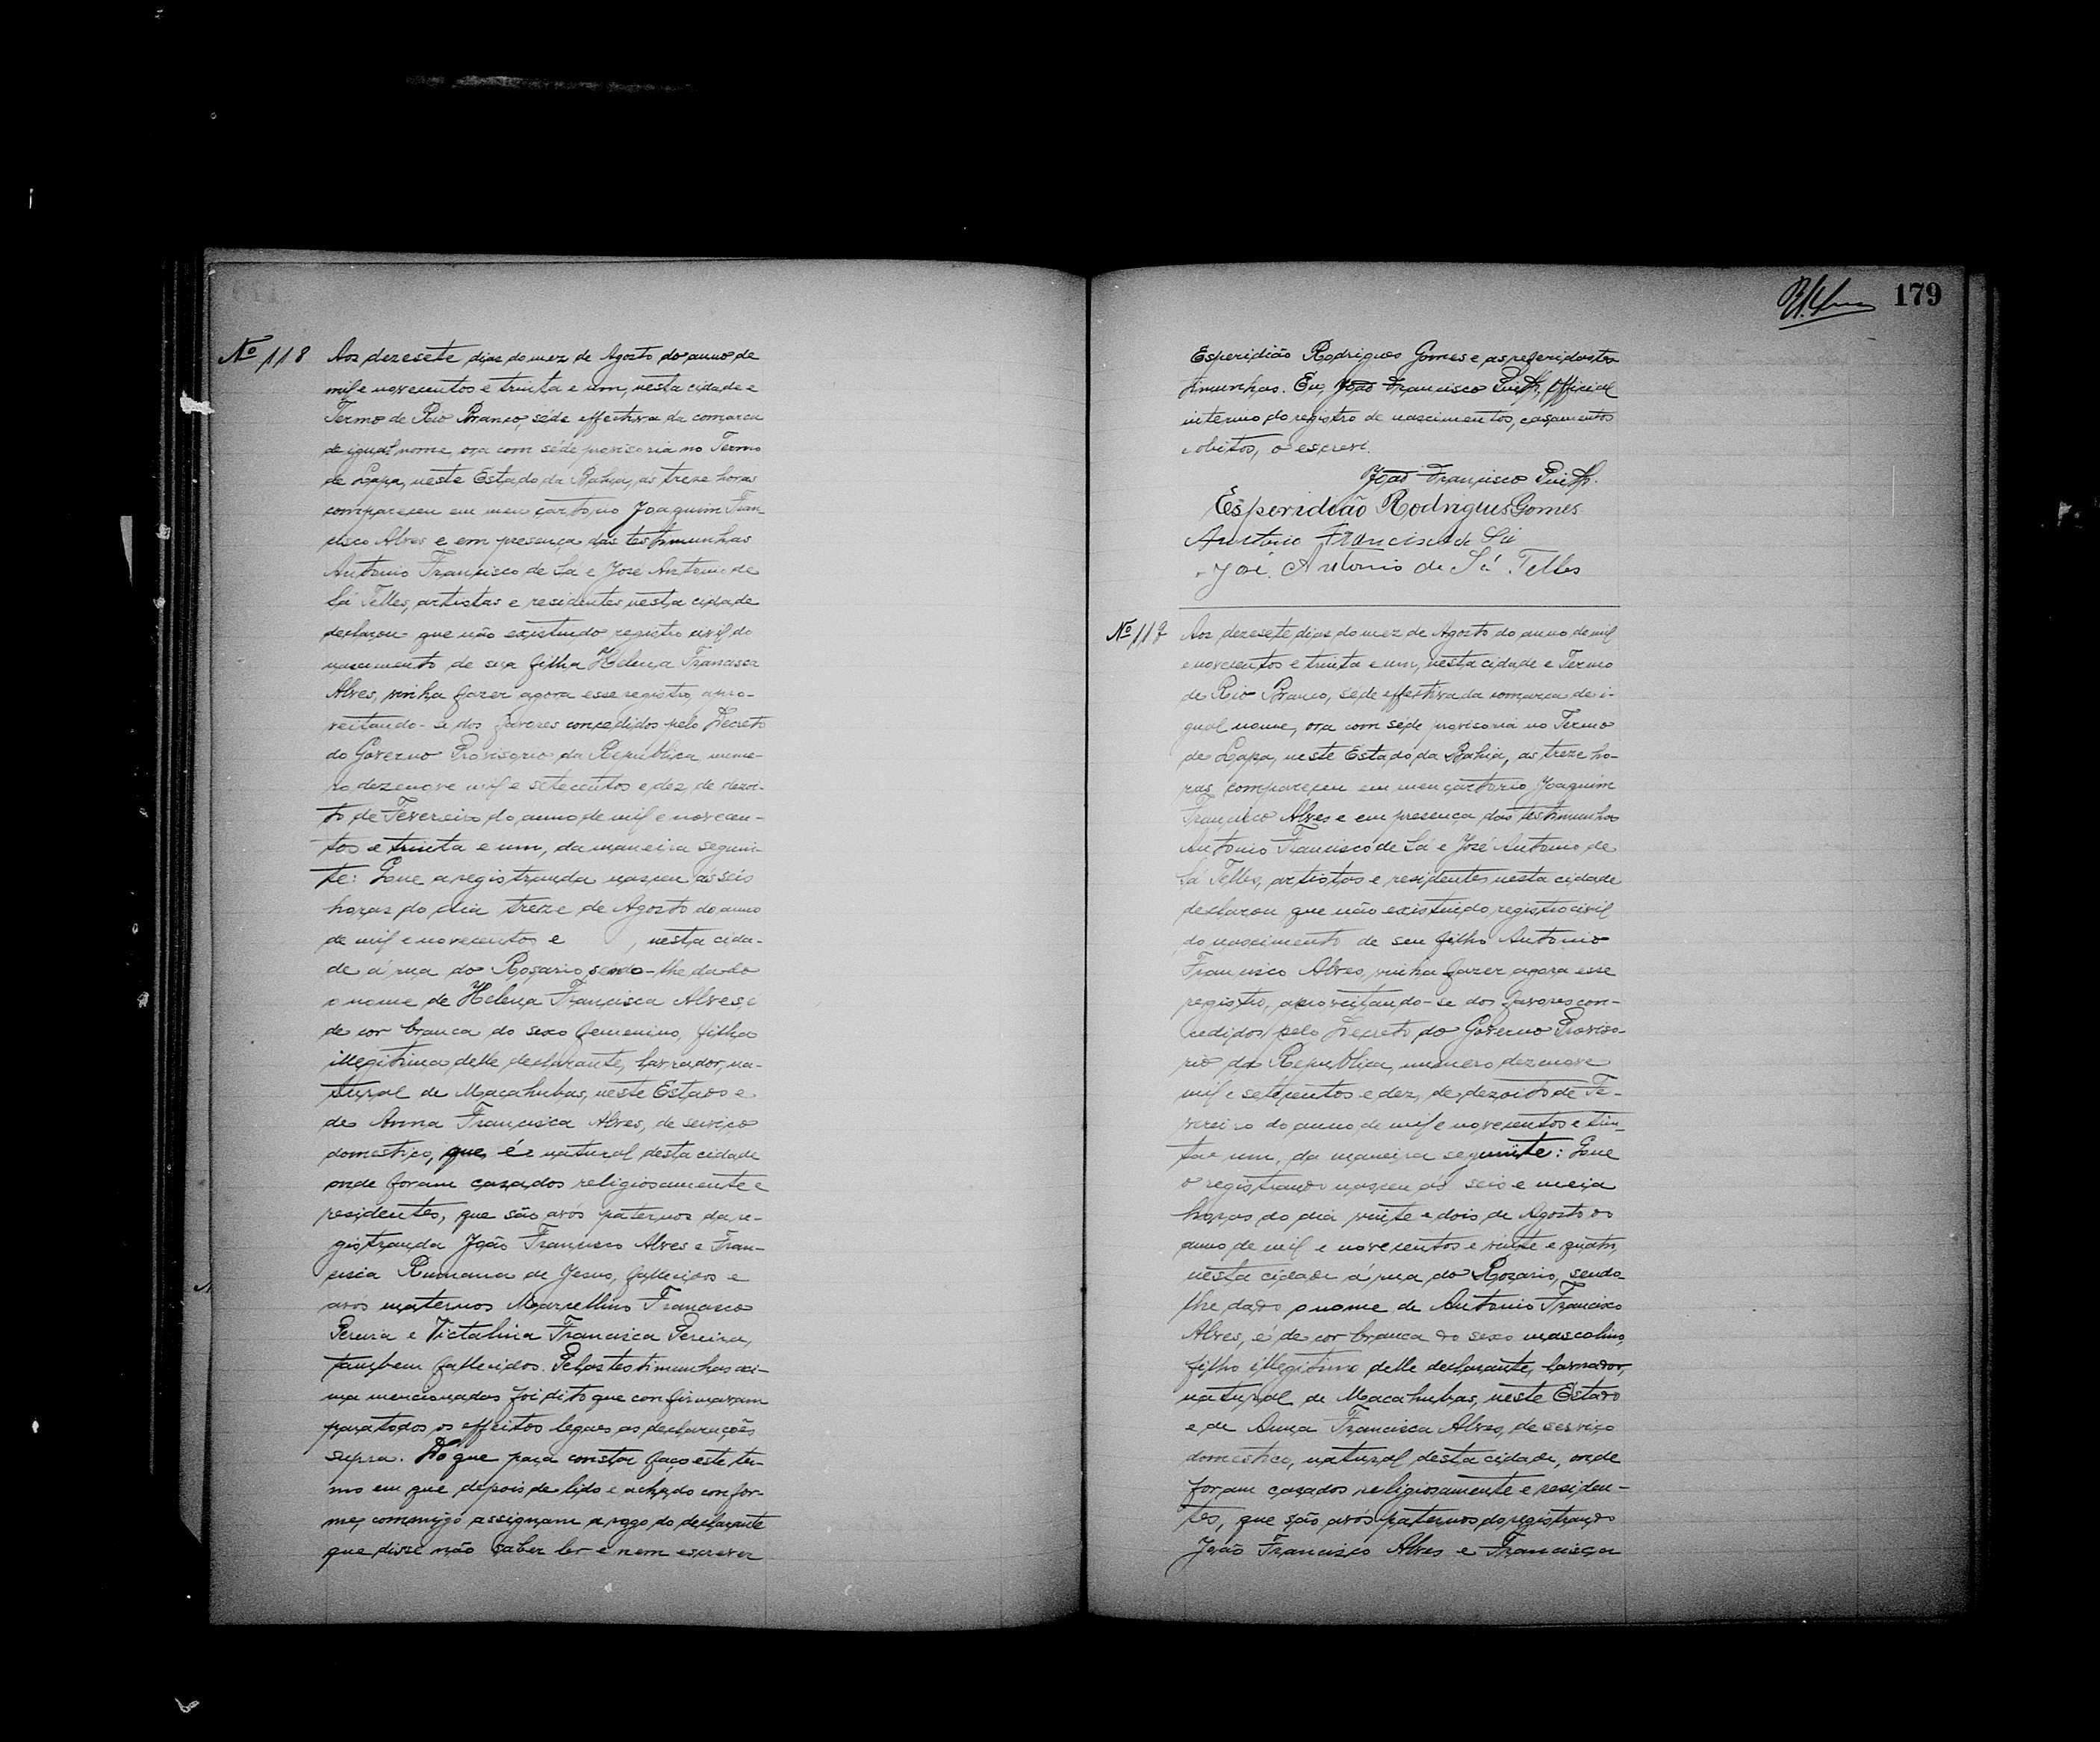 Nº 118 Aos dezesete dias do mez de Agosto do anno de
mil e novecentos e trinta e um, nesta cidade e
Termo de Rio Branco, séde effectiva da comarca
de igual nome, ora com séde provisoria no Termo
de Lapa, neste Estado da Bahia, ás treze horas
compareceu em meu cartorio Joaquim Fran
cisco Alves e em presença das testimunhas
Antonio Francisco de Sá e José Antonio de
Sá Telles, artistas e residentes nesta cidade
declarou que não existindo registro civil do
nascimento de sua filha Helena Francisca
Alves, vinha fazer agora esse registro, apro-
veitando-se dos favores concedidos pelo Decreto
do Governo Provisorio da Republica nume-
ro dezenove mil e setecentos e dez, de dezoi-
to de Fevereiro do anno de mil e novecen-
tos e trinta e um, da maneira seguin-
te: Que a registranda nasceu ás seis
horas do dia treze de Agosto do anno
de mil e novecentos e , nesta cida-
de á rua do Rosario, sendo-lhe dado
o nome de Helena Francisca Alves é
de cor branca do sexo femenino, filha
illegitima delle declarante, lavrador, na-
tural de Macahubas, neste Estado e
de Anna Francisca Alves, de serviço
domestico, que é natural desta cidade
onde foram casados religiosamente e
residentes, que são avós paternos da re-
gistranda João Francisco Alves e Fran-
cisca Rumana de Jesus, fallecidos e
avós maternos Marcellino Francisco
Pereira e Victalina Francisca Pereira,
tambem fallecidos. Pelas testimunhas aci-
ma mencionadas foi dito que confirmavam
para todos os effeitos legaes as declarações
supra. Do que para constar faço este ter-
mo em que depois de lido e achado confor-
me, commigo assignam a rogo do declarante
que disse não saber ler e nem escrever
179
Esperidião Rodrigues Gomes e as referidas tes
timunhas. Eu, João Francisco, Official
interino do registro de nascimentos, casamentos
e obitos, o escrevi.
João Francisco
Esperidião Rodrigues Gomes
Antonio Francisco de Sá
José Antonio de Sá Telles
Nº 119 Aos dezesete dias do mez de Agosto do anno de mil
e novecentos e trinta e um, nesta cidade e Termo
de Rio Branco, séde effectiva da comarca de i-
gual nome, ora com séde provisoria no Termo
de Lapa, neste Estado da Bahia, as treze ho-
ras compareceu em meu cartorio Joaquim
Francisco Alves e em presença das testimunhas
Antonio Francisco de Sá e José Antonio de
Sá Telles, artistas e residentes nesta cidade
declarou que não existindo registro civil
do nascimento de seu filho Antonio
Francisco Alves, vinha fazer agora esse
registro, aproveitando-se dos favores con-
cedidos pelo Decreto do Governo Proviso-
rio da Republica, numero dezenove
mil e setecentos e dez, de dezoito de Fe-
vereiro do anno de mil e novecentos e trin-
ta e um, da maneira seguinte: Que
o registrando nasceu ás seis e meia
horas do dia vinte e dois de Agosto do
anno de mil e novecentos e vinte e quatro,
nesta cidade á rua do Rosario, sendo
lhe dado o nome de Antonio Francisco
Alves, é de cor branca do sexo mascolino,
filho illegitimo delle declarante, lavrador,
natural de Macahubas, neste Estado
e de Anna Francisca Alves, de serviço
domestico, natural desta cidade, onde
foram casados religiosamente e residen-
tes, que são avós paternos do registrando
João Francisco Alves e Francisca